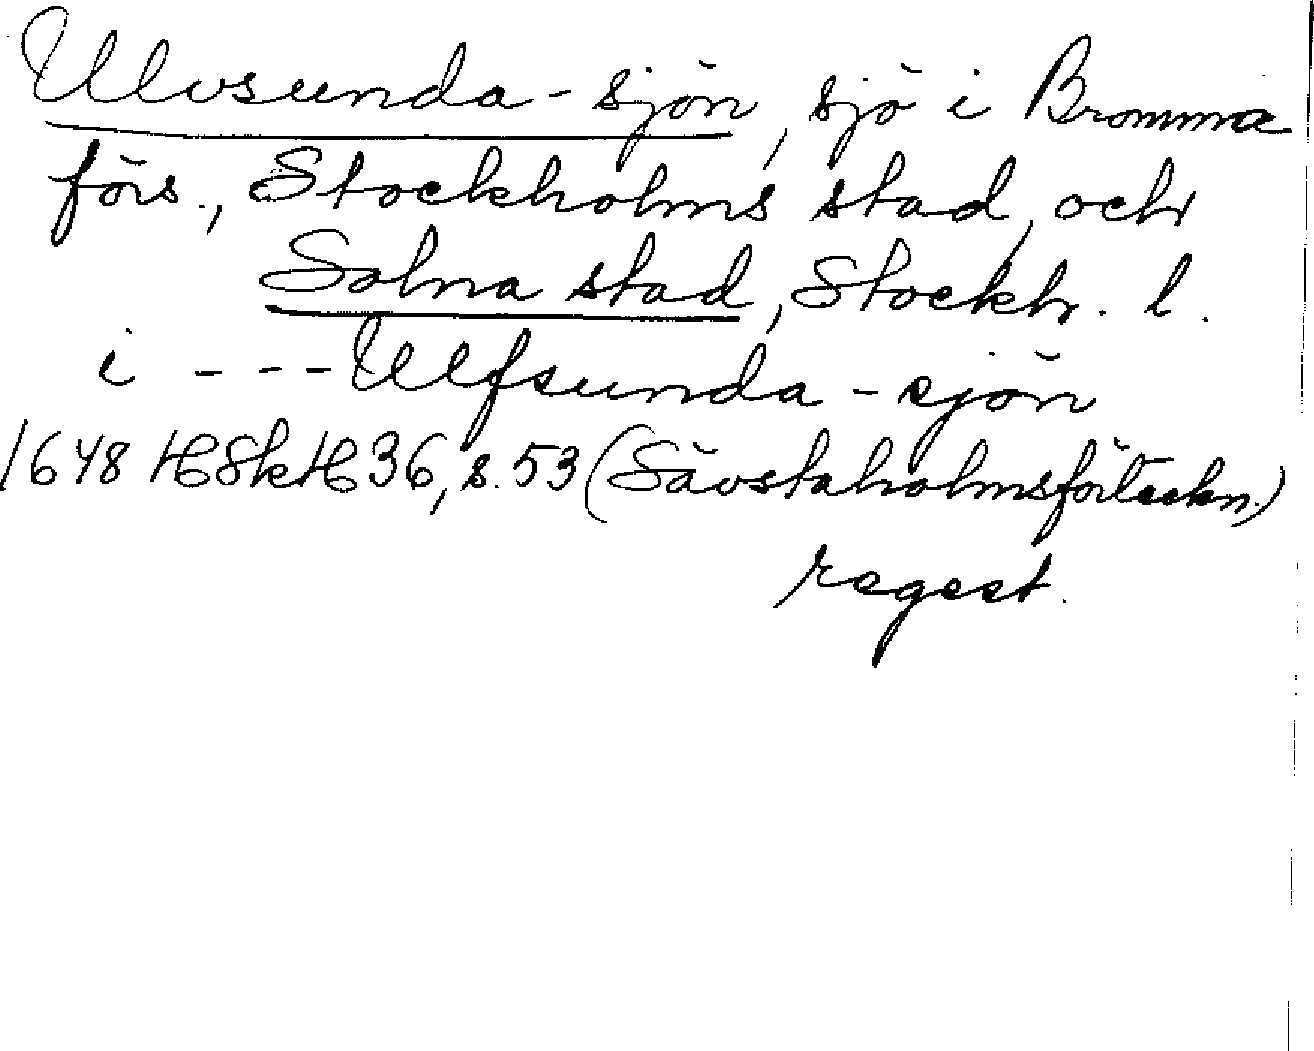 Ulvsunda-sjön, sjö i Bromma
förs., Stockholms stad, och
Solna stad, Stockh. l.
i - - - Ulfsunda-sjön
1648 HSkH 36, s. 53 (Sävstaholmsförteckn.)
regest.